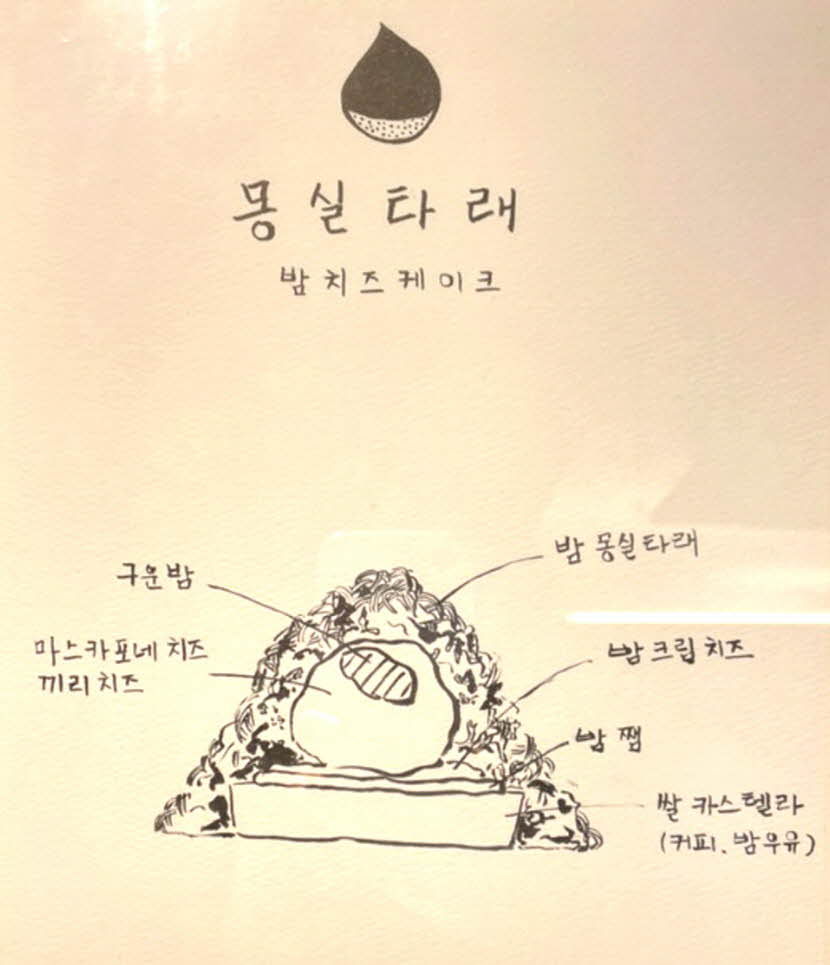 몽실타래
밤치즈케이크
구운밤
밤 몽실타래
마스카포네 치즈
끼리 치즈
밤 크림 치즈
밤 쨈
쌀 카스텔라
(커피, 밤우유)